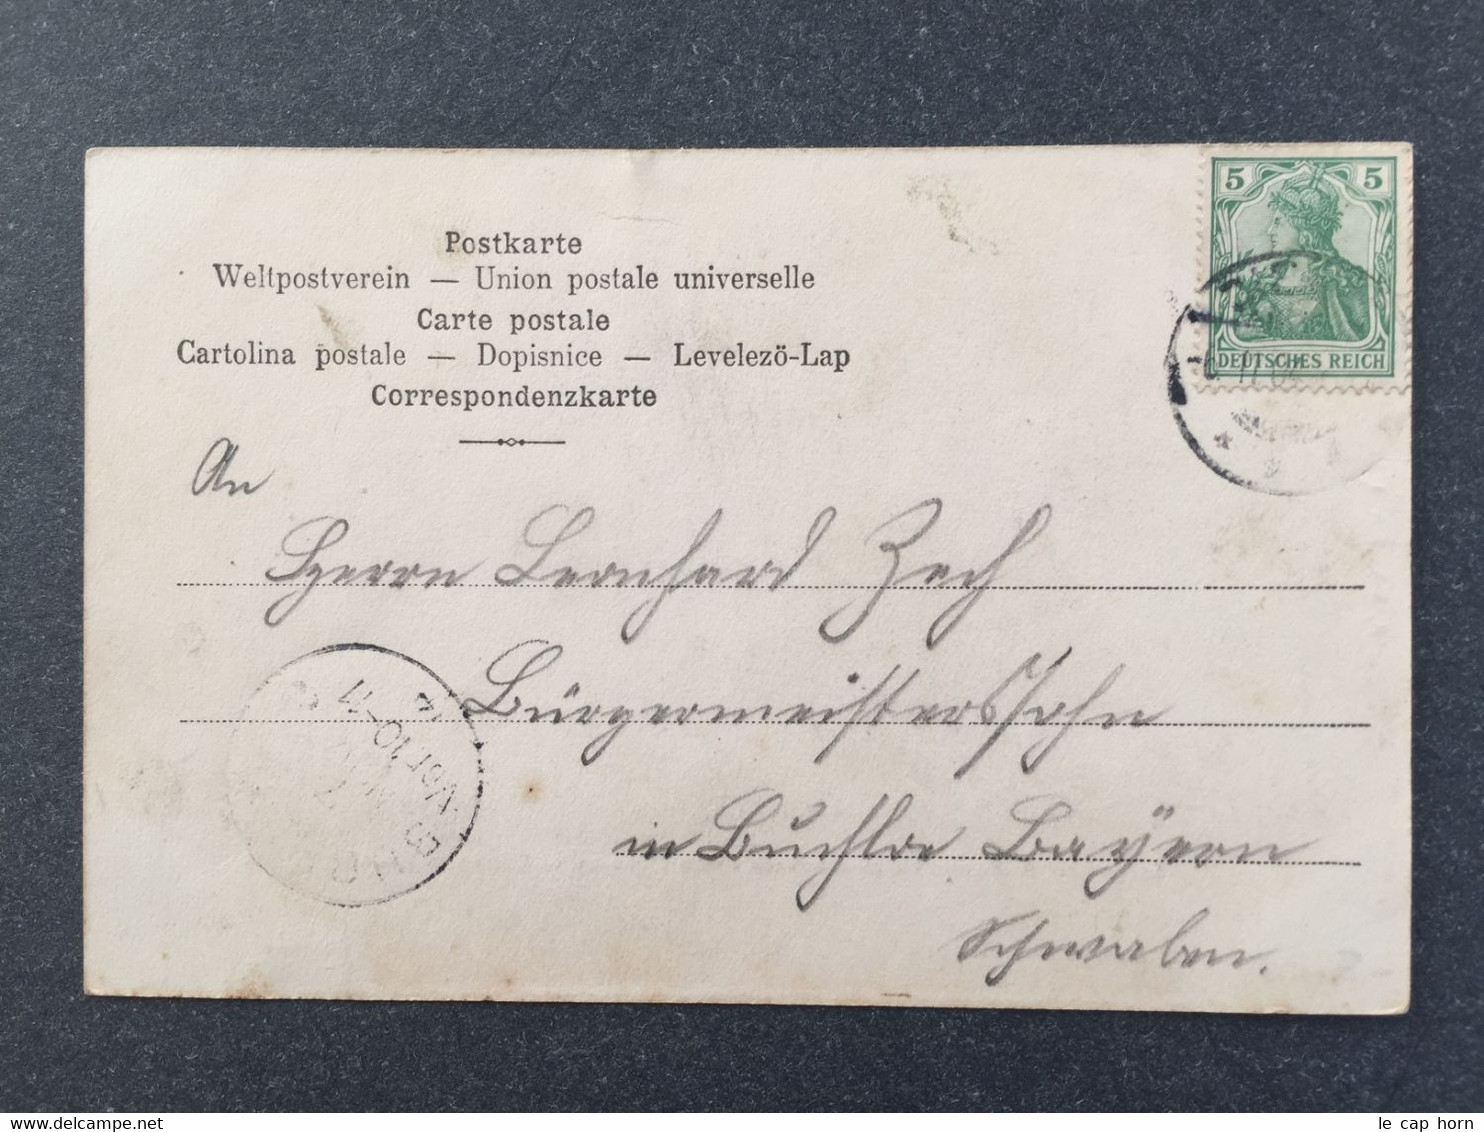 Postkarte
Weltpostverein — Union postale universelle
Carte postale
Cartolina postale — Dopisnice — Levelező-Lap
Correspondenzkarte
5 5
DEUTSCHES REICH
An
Herrn Leonhard Zech
Bürgermeisterssohn
in Buchloe Bayern
Schwaben.
Vor.10-11
le cap horn